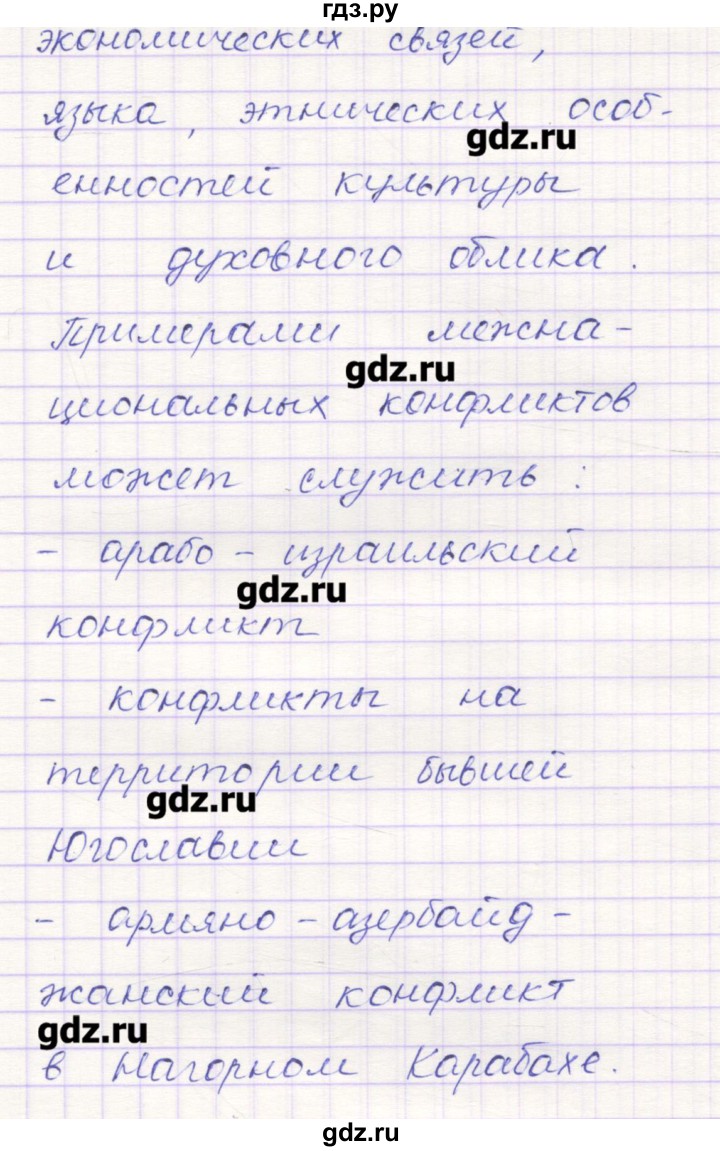 гдз.ру
экономических связей,
языка, этнических особ-
gdz.ru
енностей культуры
и духовного облика.
Примерами межна-
gdz.ru
циональных конфликтов
может служить:
- арабо - израильский
gdz.ru
конфликт
- конфликты на
территории бывшей
gdz.ru
Югославии
- армяно - азербайд-
жанский конфликт
gdz.ru
в Нагорном Карабахе.
gdz.ru